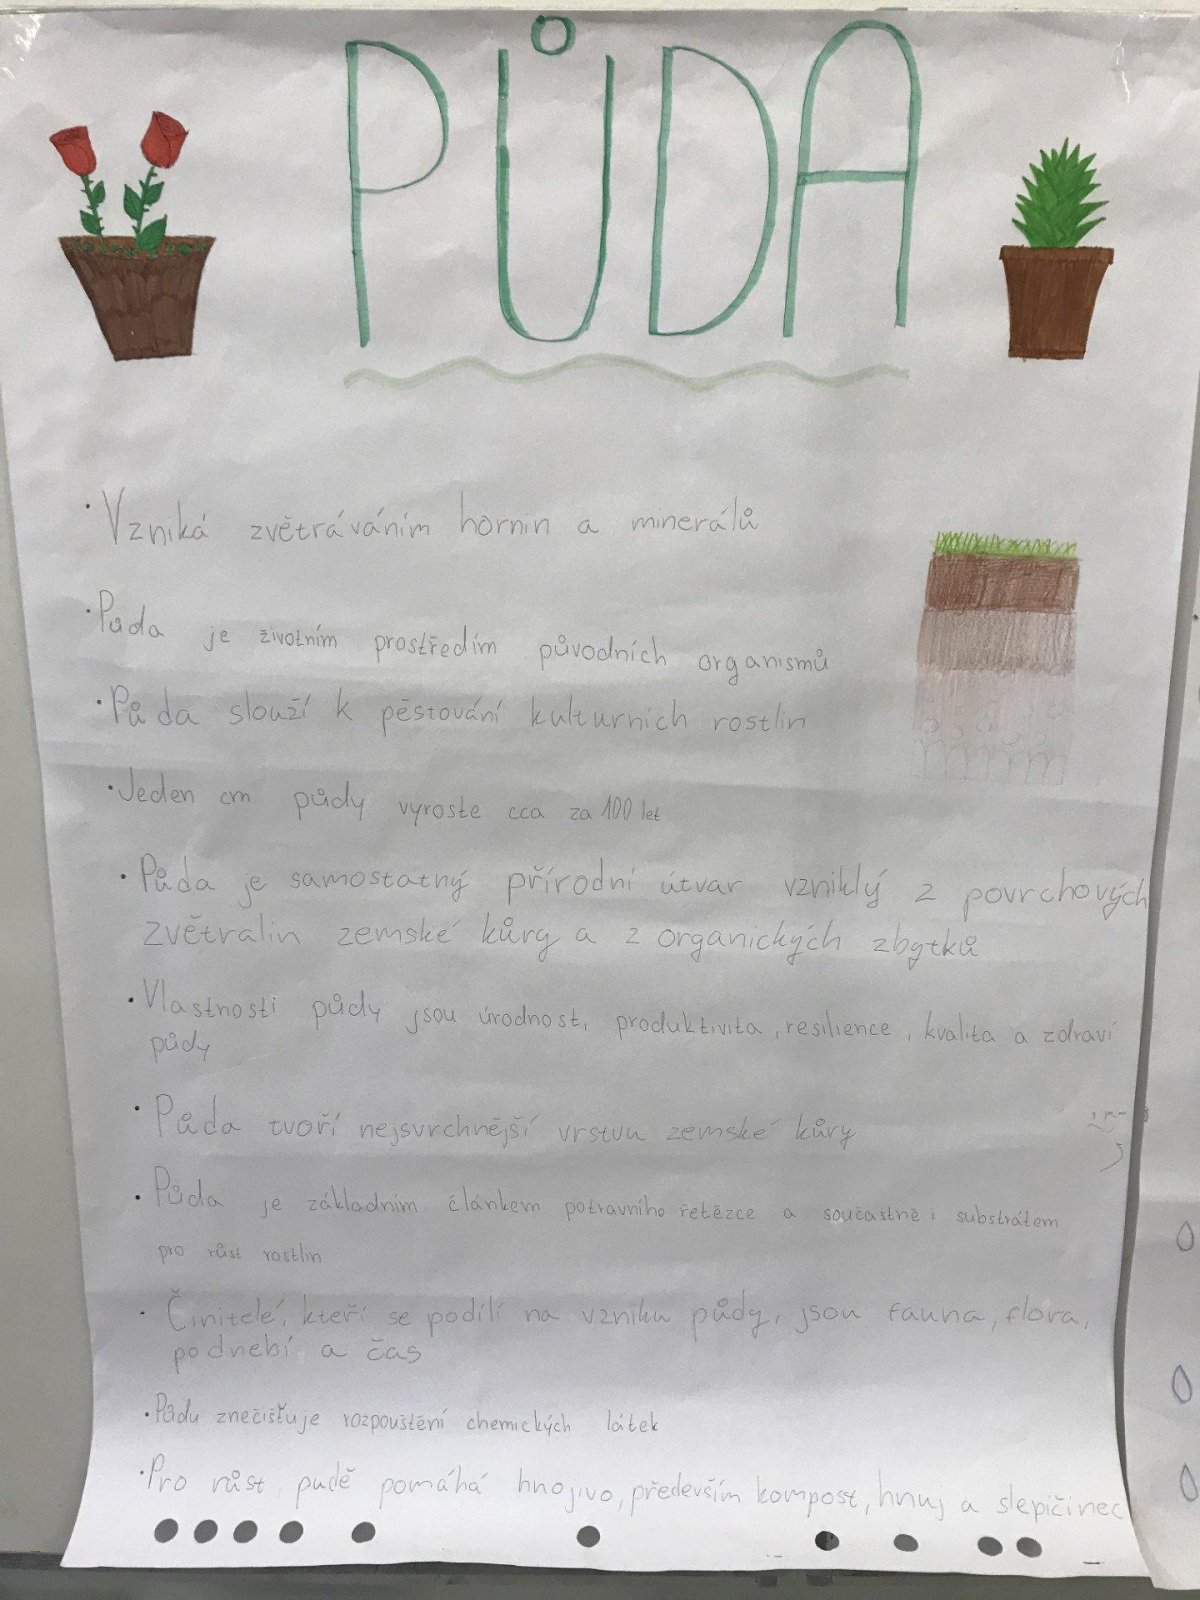 PŮDA
• Vzniká zvětráváním hornin a minerálů
• Půda je životním prostředím původních organismů
• Půda slouží k pěstování kulturních rostlin
• Jeden cm půdy vyroste cca za 100 let
• Půda je samostatný přírodní útvar vzniklý z povrchových
zvětralin zemské kůry a z organických zbytků
• Vlastnosti půdy jsou úrodnost, produktivita, resilience, kvalita a zdraví
půdy
• Půda tvoří nejsvrchnější vrstvu zemské kůry
• Půda je základním článkem potravního řetězce a součastně i substrátem
pro růst rostlin
• Činitelé, kteří se podílí na vzniku půdy, jsou fauna, flora,
podnebí a čas
• Půdu znečišťuje rozpouštění chemických látek
• Pro růst pudě pomáhá hnojivo, především kompost, hnuj a slepičinec